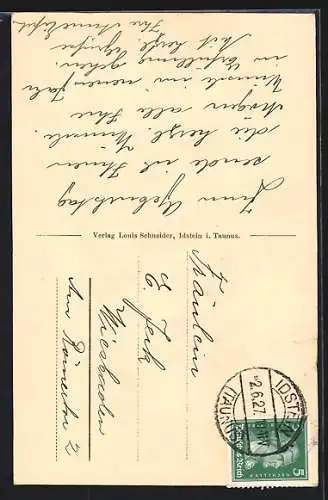 Zum Geburtstag
sende ich Ihnen
die herzl. Wünsche.
Mögen alle Ihre
Wünsche im neuen Jahr
in Erfüllung gehen.
Mit herzl. Grüßen
Ihre
Verlag Louis Schneider, Idstein i. Taunus.
Fräulein
Wiesbaden
Am Römertor 2
IDSTEIN
2.6.27.
(TAUNUS)
5
Deutsches Reich